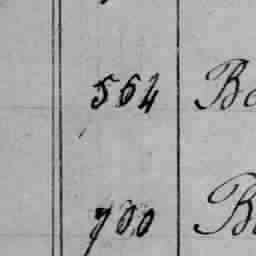 564 Bo
700 B